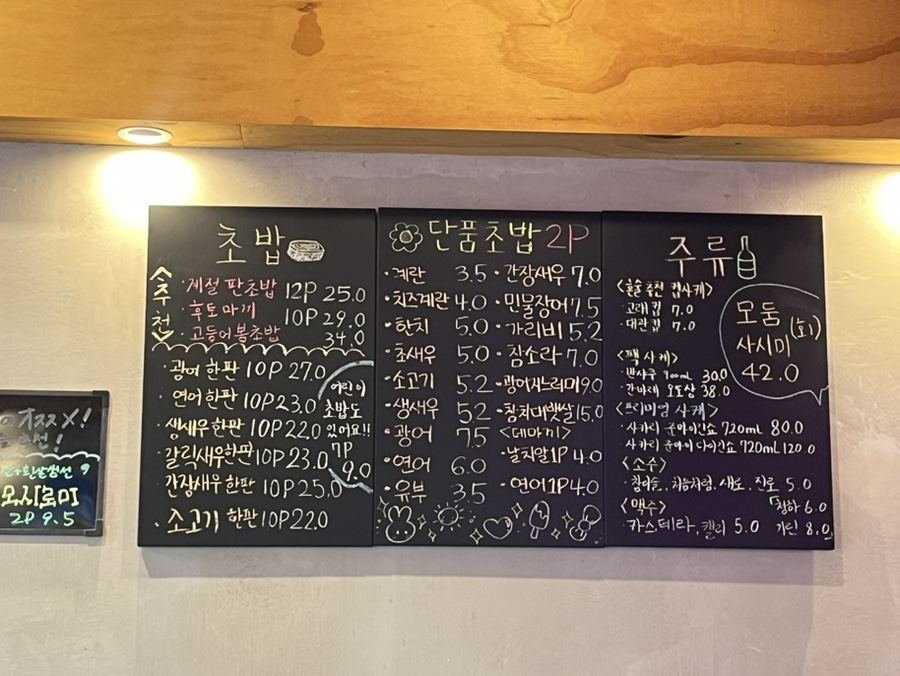 초밥
<추천>
· 계절 판초밥 12P 25.0
· 후토마끼 10P 29.0
· 고등어봉초밥 34.0
· 광어 한판 10P 27.0
· 연어 한판 10P 23.0
· 생새우한판 10P 22.0
· 갈릭새우한판 10P 23.0
· 간장새우한판 10P 25.0
· 소고기 한판 10P 22.0
어린이
초밥도
있어요!!
7P
9.0
단품초밥 2P
· 계란 3.5
· 치즈계란 4.0
· 한치 5.0
· 초새우 5.0
· 소고기 5.2
· 생새우 5.2
· 광어 7.5
· 연어 6.0
· 유부 3.5
· 간장새우 7.0
· 민물장어 7.5
· 가리비 5.2
· 참소라 7.0
· 광어지느러미 9.0
· 참치머뱃살 15.0
<데마끼>
· 날치알1P 4.0
· 연어1P 4.0
주류
<혼술 추천 컵사케>
· 고래컵 7.0
· 대관컵 7.0
<팩 사케>
· 900mL 30.0
· 간바레 오또상 38.0
<프리미엄 사케>
· 사카리 720mL 80.0
· 사카리 720mL 120.0
<소주>
· 참이슬, 처음처럼, 새로, 진로 5.0
청하 6.0
<맥주>
· 카스, 테라, 켈리 5.0
기린 8.0
모둠
사시미 (회)
42.0
オススメ!
추천!
모치로미
2P 9.5